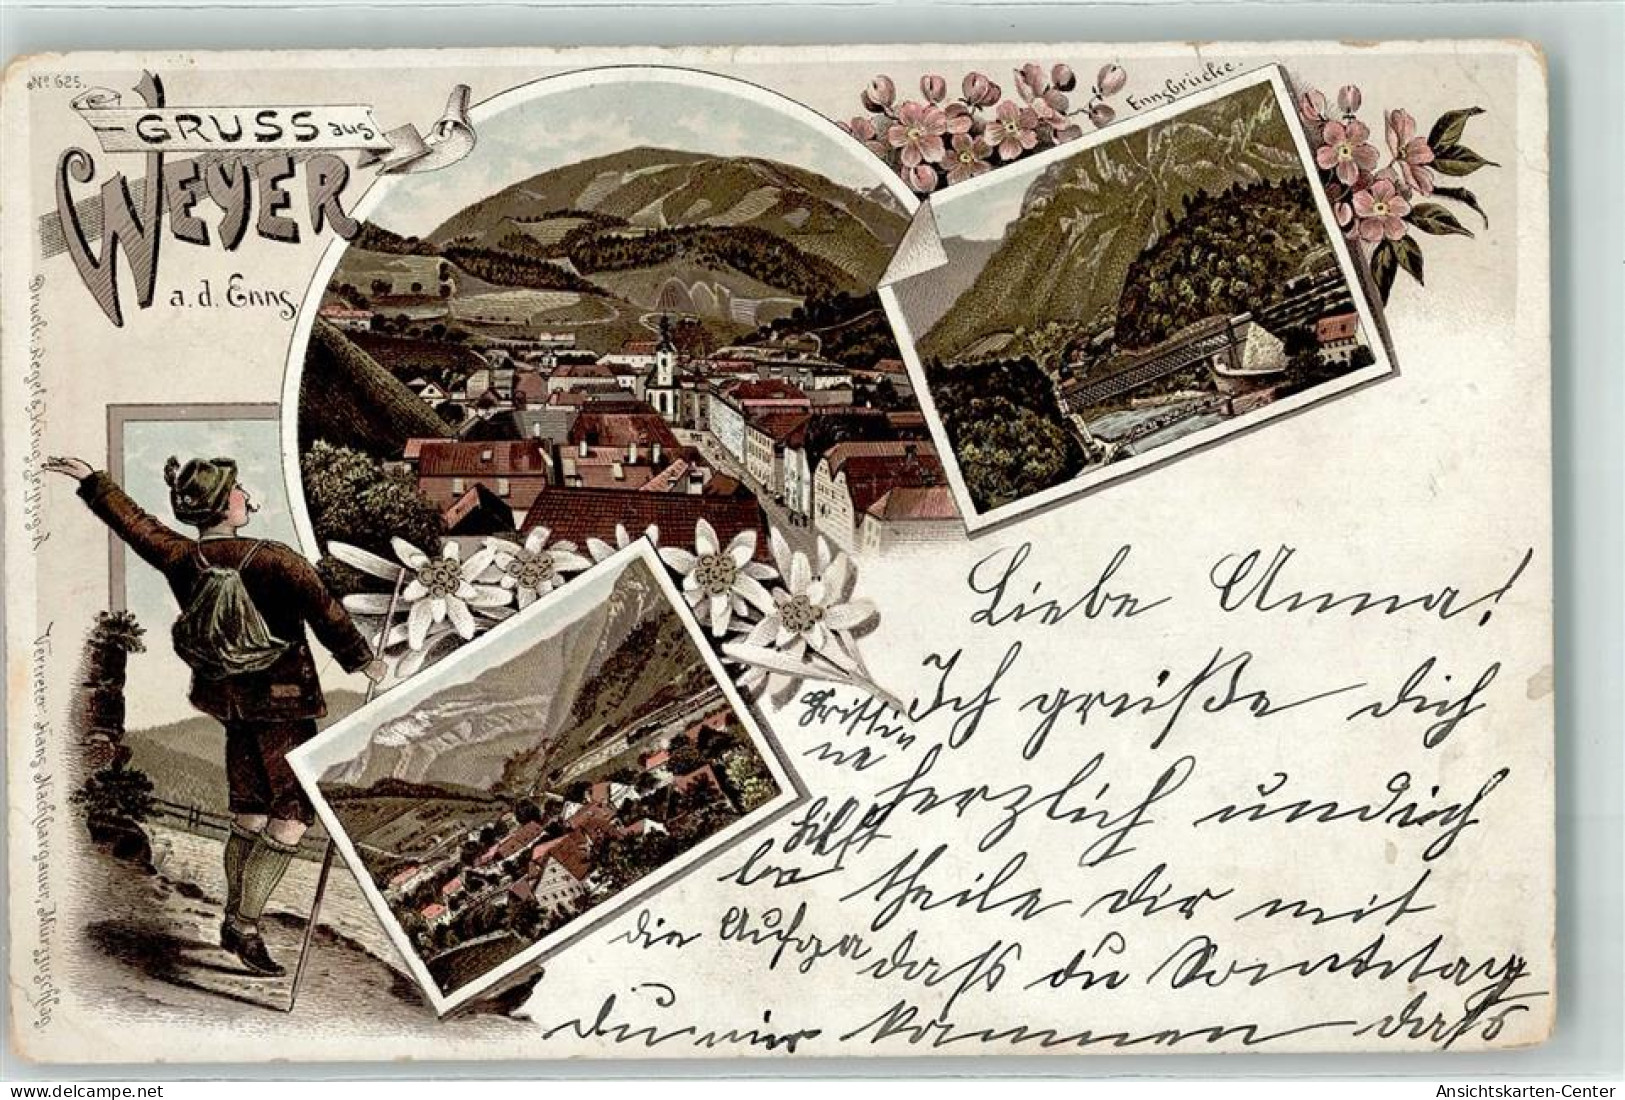 No 625.
GRUSS aus
WEYER
a. d. Enns.
Ennsbrücke.
Druck: Regel & Krug, Leipzig-R.
Vertreter: Hans Nachbargauer, Mürzzuschlag.
Liebe Anna!
Ich grüße dich
herzlich und ich
theile dir mit
dass du Sonntag
kommen dass
du mir
die Aufga
Ansichtskarten-Center